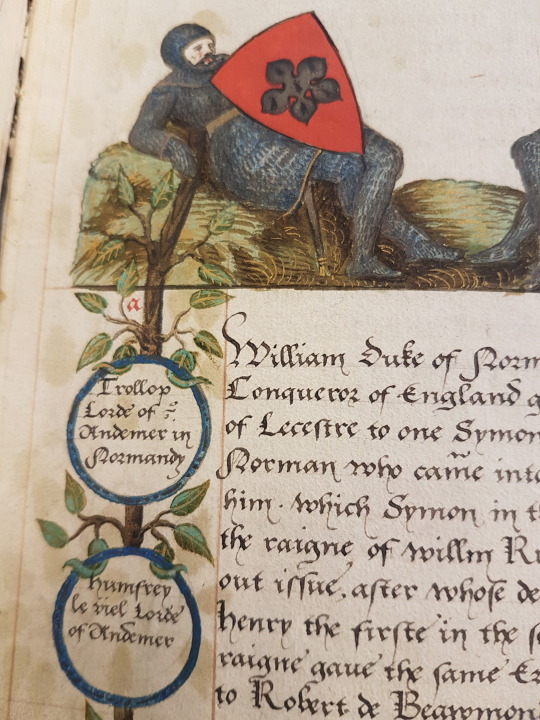 a
Trollop
Lorde of
Andemer in
Normandy
Humfrey
le viel Lorde
of Andemer
William Duke of Norm
Conqueror of England g
of Lecestre to one Symon
Norman who came into
him. which Symon in th
the raigne of willm Ru
out issue, after whose de
henry the firste in the se
raigne gave the same Er
to Robert de Beawmon